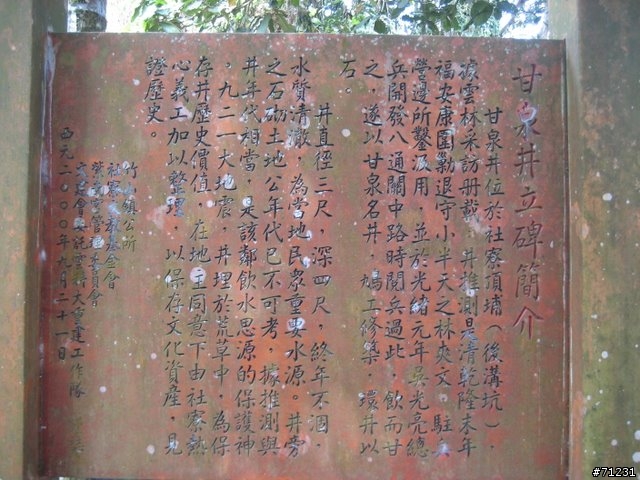 甘泉井立碑簡介
甘泉井位於社寮頂埔（後溝坑），
據雲林采訪册載，井推測是清乾隆末年
福安康圍勦退守小半天之林爽文，駐兵
營邊所鑿汲用。並於光緒元年吳光亮總
兵開發八通關中路時閱兵過此，飲而甘
之，遂以甘泉名井，鳩工修築，環井以
石。
井直徑三尺，深四尺，終年不涸，
水質清澈，為當地民眾重要水源。井旁
之石砌土地公年代已不可考，據推測與
井年代相當，是該鄰飲水思源的保護神
。九二一大地震，井埋於荒草中，為保
存井歷史價值，在地主同意下由社寮熱
心義工加以整理，以保存文化資產，見
證歷史。
竹山鎮公所
社寮文教基金會
紫南宮管理委員會
文建會委託雲科大重建工作隊
西元二０００年九月二十一日
#71231